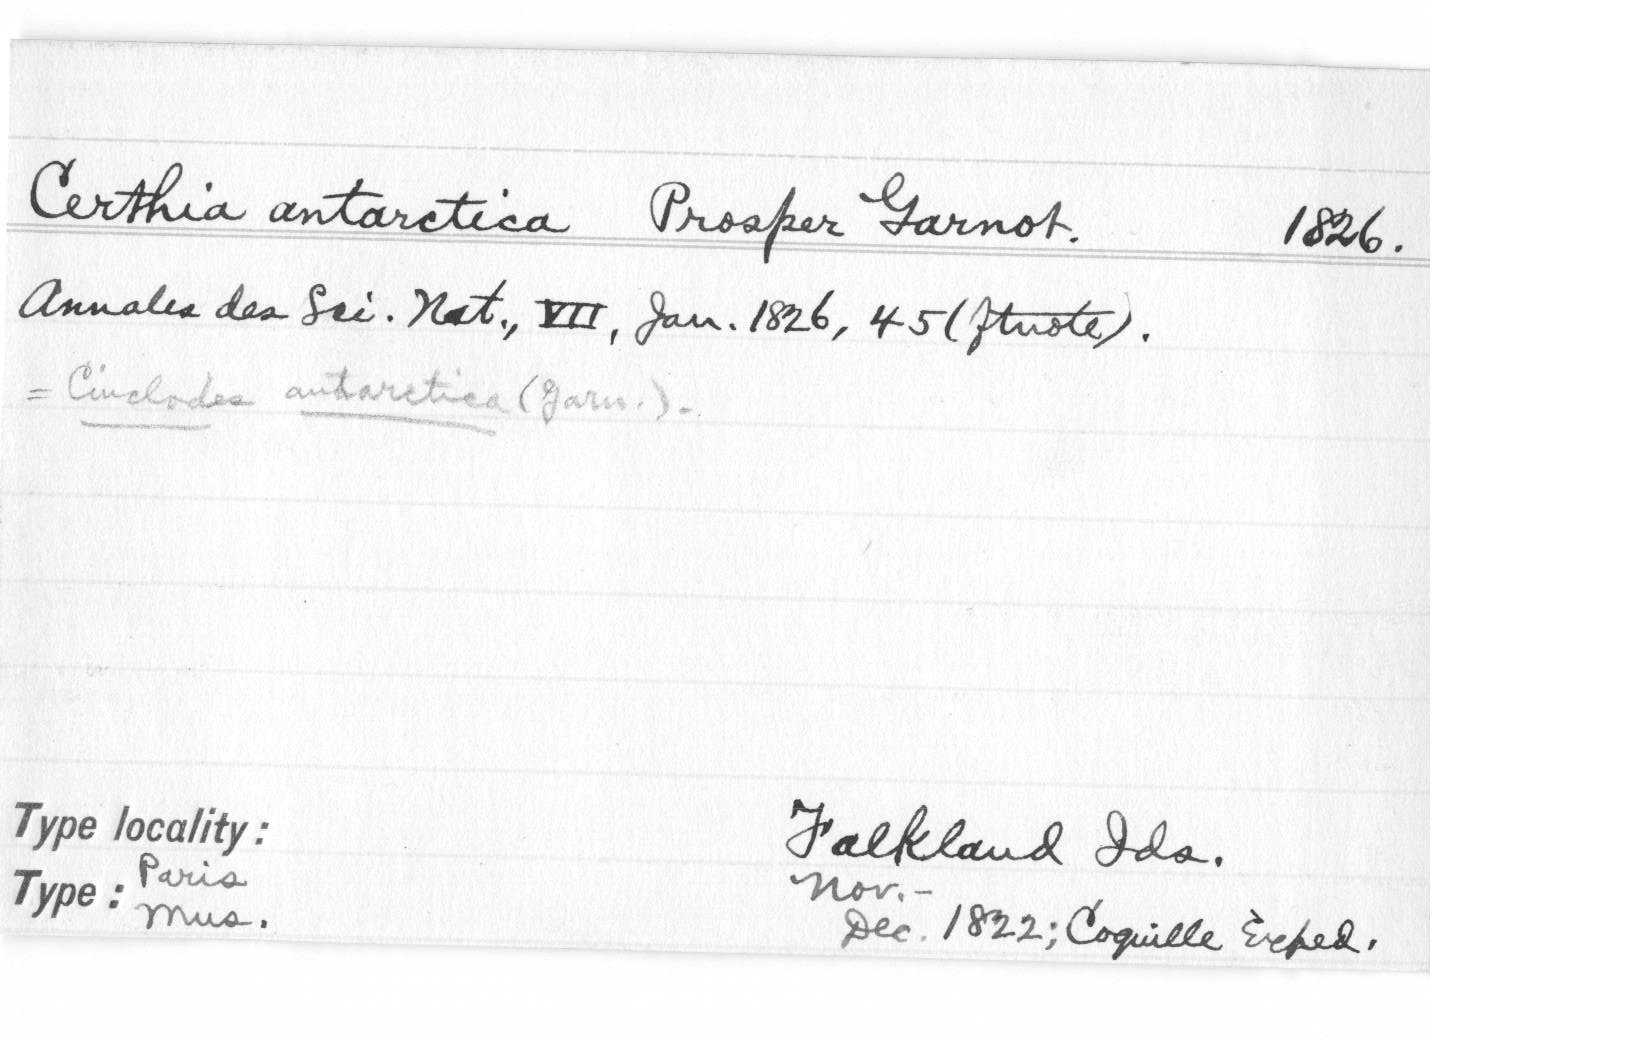 Certhia antarctica Prosper Garnot. 1826.
Annales des Sci. Nat., VII, Jan. 1826, 45 (ftnote).
= Cinclodes antarctica (Garn.).
Type locality: Falkland Ids.
Type: Paris Mus.
Nov.-
Dec. 1822; Coquille Exped.